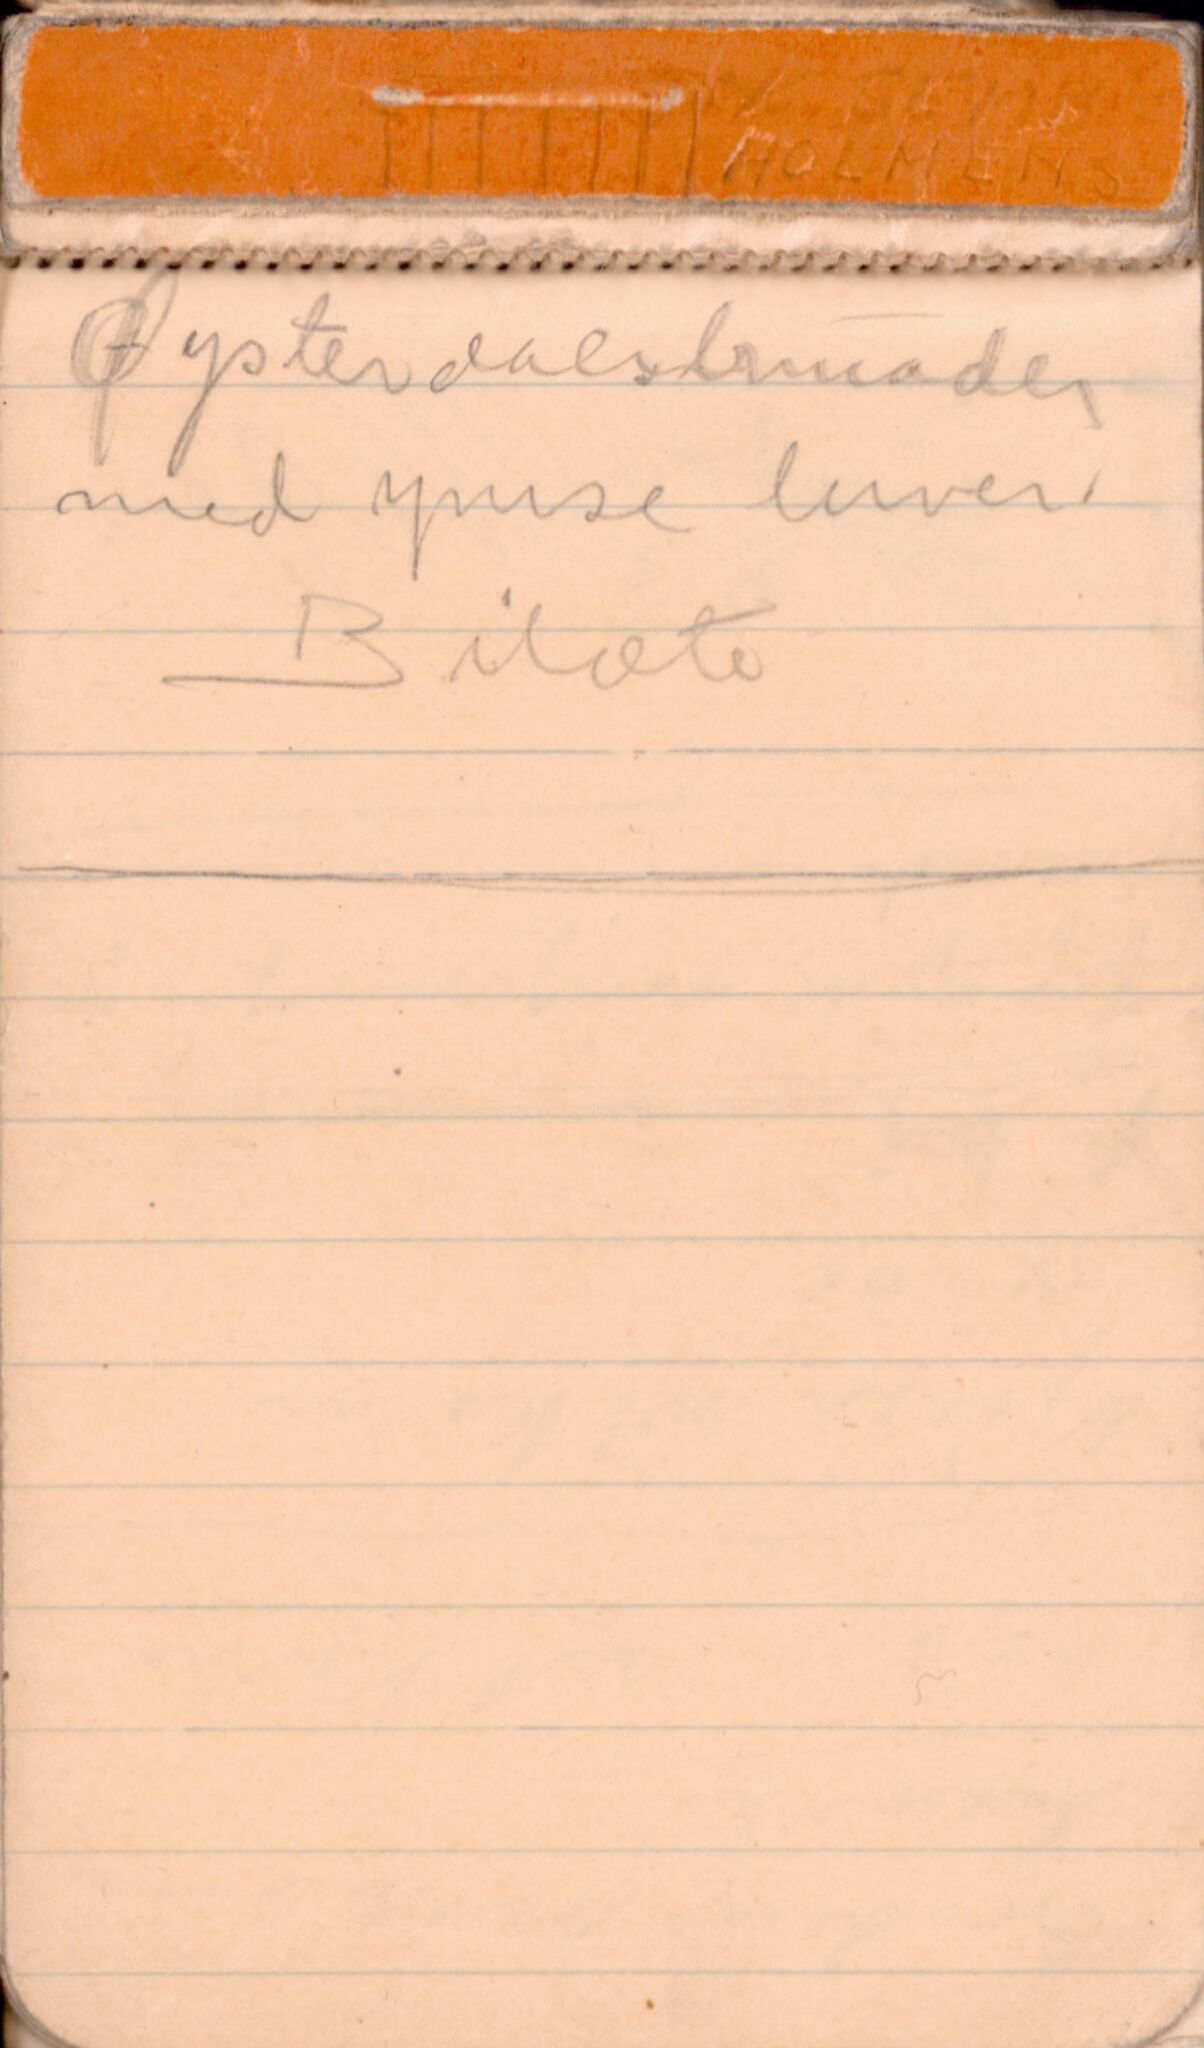 HOLMENS
Øysterdalsbunader
med ymse luver
Bilæte